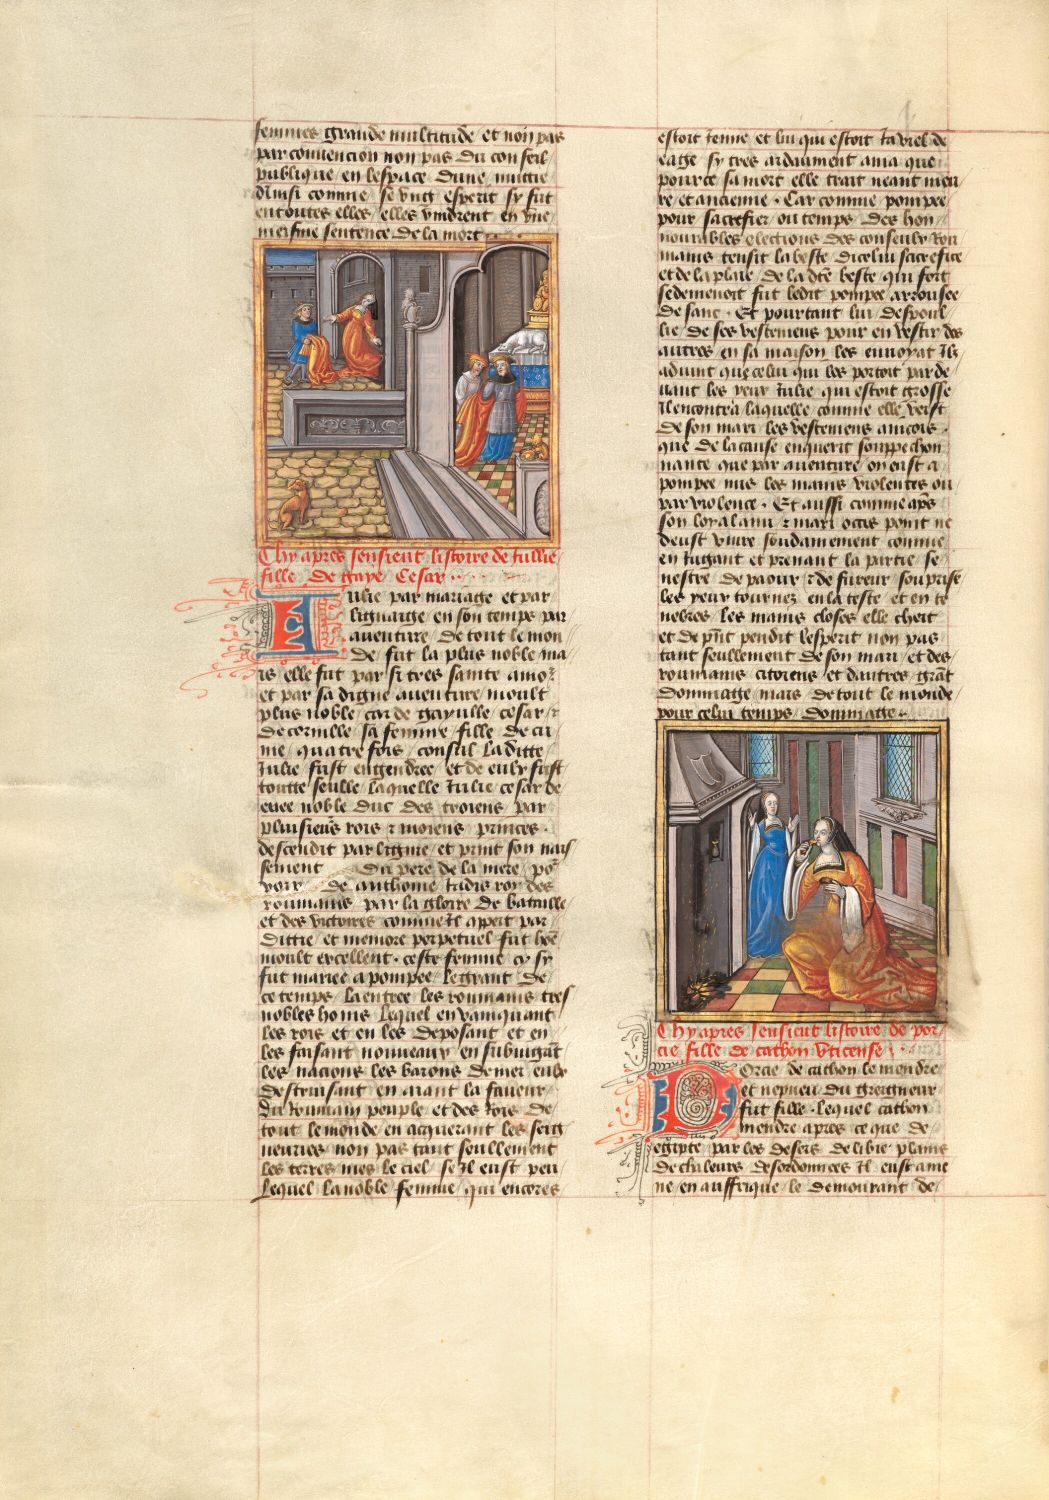 femmes grande multitude et non pas
par convencion non pas du conseil
publique en lespace dune nuittie
Ainsi comme se ung esperit sy fut
en toutes elles elles vindrent en une
mesme sentence de la mort
Chy apres sensieut listoire de iullie
fille de gaye Cesar
Iulie par mariage et par
lignaige en son temps par
aventure de tout le mon
de fut la plus noble ma
is elle fut par si tres sainte amor
et par sa digne aventure moult
plus noble car de gayulle cesar
de cornille sa femme fille de cin
ne quatre fois consul la ditte
Iulie fust engendree et de eulx fust
toutte seulle laquelle Iulie cesar de
enee noble duc des troiens par
pluisieurs rois moiens princes
descendit par lignie et print son nais
sement Du pere de la mere
de anthome iadis roy des
roumains par la gloire de bataille
et des victoires comme Il appert par
dittie et memore perpetuel fut bien
moult excellent ceste femme cy sy
fut mariee a pompee le grant de
ce temps la entre les roumains tres
nobles homs lequel en vainquant
les rois et en les deposant et en
les faisant nouveaux en subiugant
les nacions les barons de mer
destruisant en aiant la faveur
du Roumain peuple et des Rois de
tout le monde en acquerant les seig
neuries non pas tant seullement
les terres mes le ciel se Il eust peu
Lequel la noble femme qui encores
estoit Ienne et lui qui estoit Ia viel de
eage sy tres arduament ama que
pource sa mort elle trait neant meu
re et ancienne Car comme pompee
pour sacrefier ou temps des hon
nourables elections des conseulx Rou
mains tensit la beste dicelui sacrefice
et de la plaie de la dte beste qui fort
se demenoit fut ledit pompee arrousee
de sanc Et pourtant lui despoul
lie de ses vestemens pour en vestir des
autres en sa maison les envoyat Ils
advint que celui qui les portoit par de
vant les yeux Iulie qui estoit grosse
Il encontra laquelle comme elle veist
de son mari les vestemens aincois
que de la cause enquerit souppechon
nante que par aventure on eust a
pompee mis les mains violentes ou
par violence Et aussi comme aprs
son loyal ami mari occis point ne
deust vivre soudainement comme
en iugant et prenant la partie se
nestre de paour de fureur souprise
les yeux tournez en la teste et en te
nebres les mains closes elle cheit
et de pnt pendit lesperit non pas
tant seullement de son mari et des
roumains citoiens et dautres grant
dommage mais de tout le monde
pour celui temps dommage
Chy apres sensieut listoire de por
cie fille de cathon Vticense
Porcie de cathon le mendre
et nepveu du greigneur
fut fille lequel cathon
mendre apres ce que de
egipte par les desers de libie plains
de challeurs desordonnees Il eust ame
ne en auffrique le demourant de